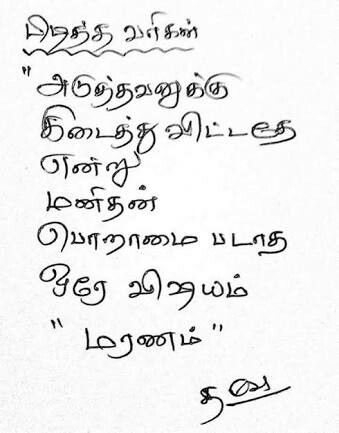 பிடித்த வரிகள்
"அடுத்தவனுக்கு
கிடைத்து விட்டதே
என்று
மனிதன்
பொறாமை படாத
ஒரே விஷயம்
"மரணம்"